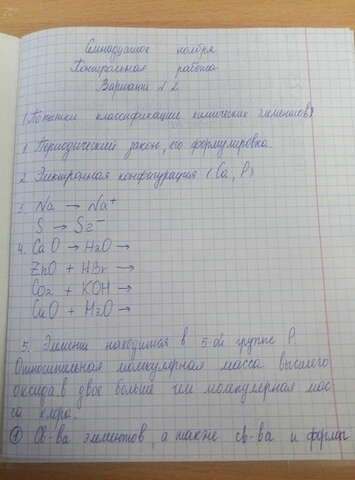 Семнадцатое ноября
Контрольная работа
Вариант №2
(Попытки классификации химических элементов)
1. Периодический закон, его формулировка
2. Электронная конфигурация (Ca, P)
3. Na → Na⁺
S → S2⁻
4. CaO → H2O →
ZnO + HBr →
CO2 + KOH →
CuO + H2O →
5. Элемент находится в 5-ой группе P.
Относительная молекулярная масса высшего
оксида в двое больше чем молекулярная мас
са хлора.
① Св-ва элементов а также св-ва и формы